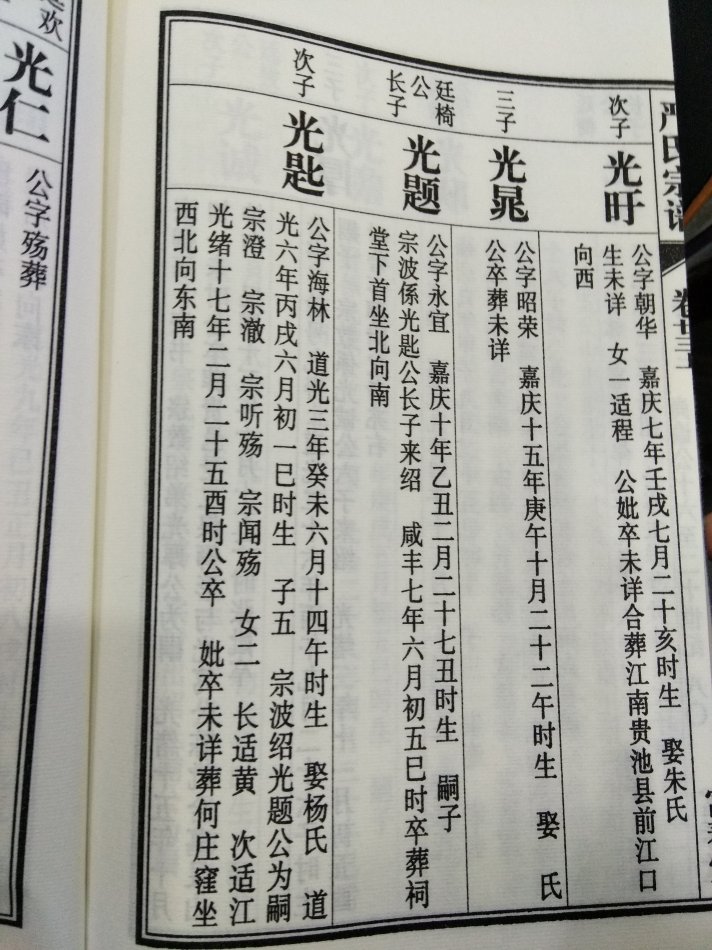 严氏宗谱
卷廿三
次子
光盱
公字朝华 嘉庆七年壬戌七月二十亥时生 娶朱氏
生未详 女一适程 公妣卒未详合葬江南贵池县前江口
向西
三子
光晁
公字昭荣 嘉庆十五年庚午十月二十二午时生 娶 氏
公卒葬未详
廷椅
公
长子
光题
公字永宜 嘉庆十年乙丑二月二十七丑时生 嗣子
宗波係光匙公长子来绍 咸丰七年六月初五巳时卒葬祠
堂下首坐北向南
次子
光匙
公字海林 道光三年癸未六月十四午时生 娶杨氏 道
光六年丙戌六月初一巳时生 子五 宗波绍光题公为嗣
宗澄 宗澈 宗听殇 宗闻殇 女二 长适黄 次适江
光绪十七年二月二十五酉时公卒 妣卒未详葬何庄窪坐
西北向东南
欢
光仁
公字殇葬